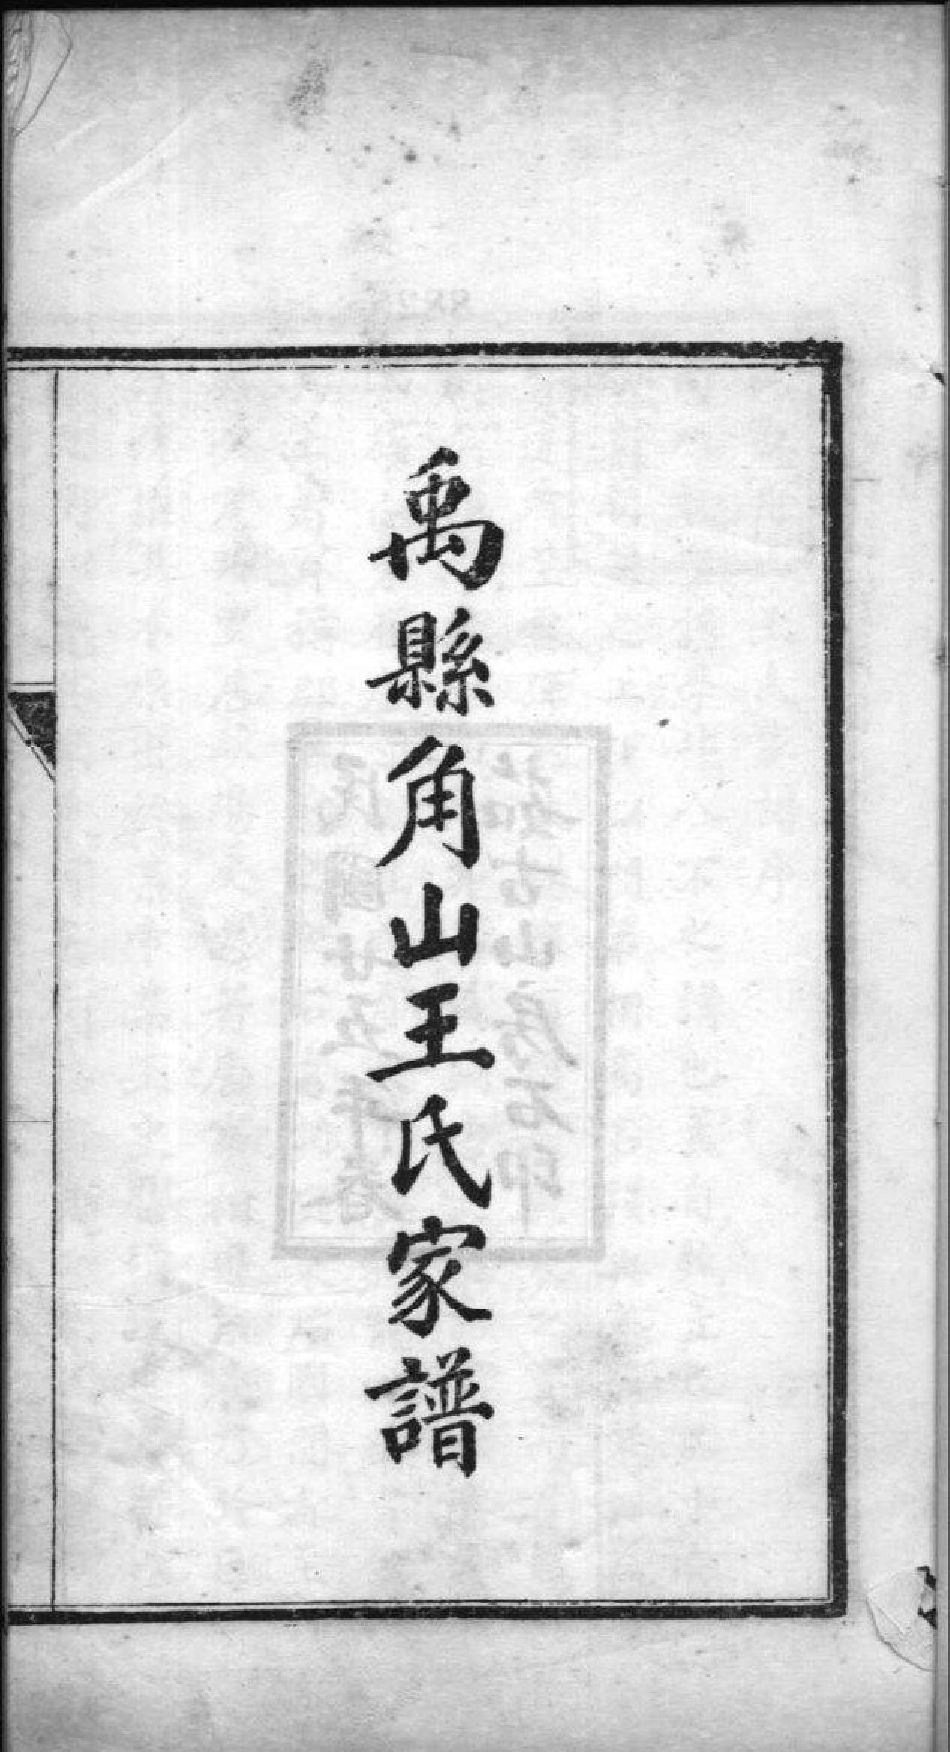 禹縣角山王氏家譜